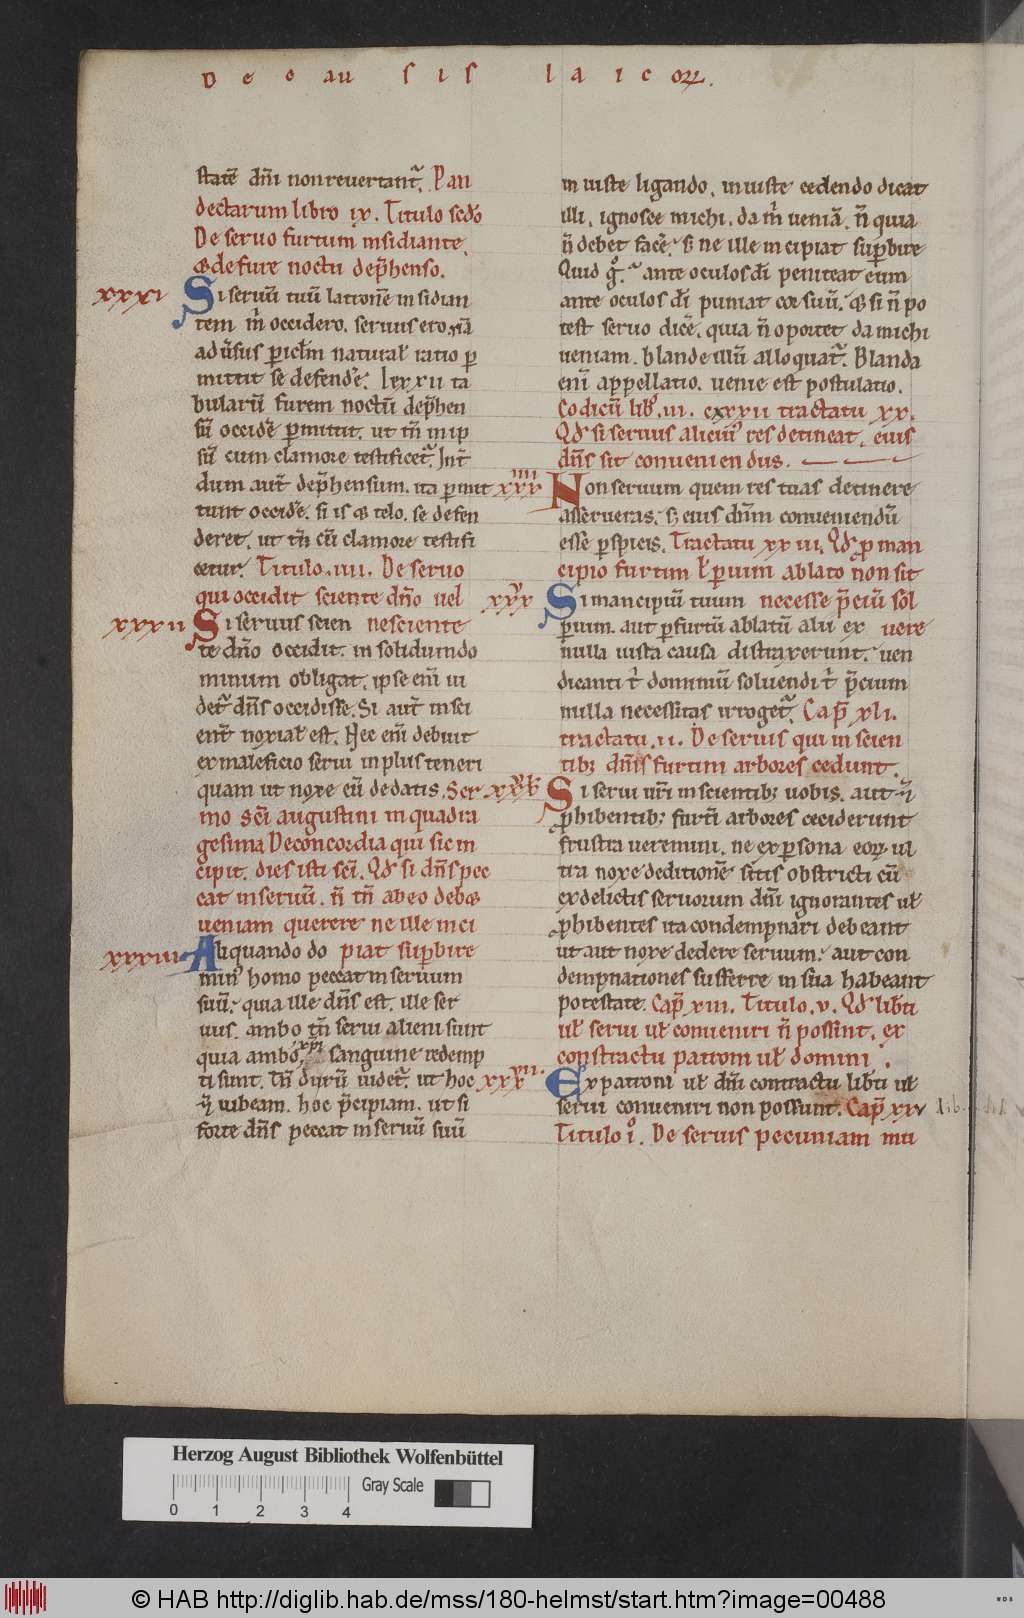 De cau sis laicoꝝ.
statē dn̄i non reuertant᷑. Pan
dectarum libro ix. Titulo scd̄o
De seruo furtum insidiante.
& de fure noctu dep̄henso.
xxxi Si seruū tuū latronē insidian
tem m̄ occidero. seruus ero. nā
aduersus pericl̄m natural̄ ratio ꝑ
mittit se defendē. lex xii ta
bularū furem noctū dep̄hen
sū occidē ꝑmittit. ut tn̄ in ip
sū cum clamore testificet᷑. Int̄
dum aut̄ dep̄hensum. ita ꝑmit
tunt occidē. si is & telo. se defen
deret. ut tn̄ cū clamore testifi
cetur. Titulo. iiii. De seruo
qui occidit sciente dn̄o uel
xxxii Si seruus scien nesciente
te dn̄o occidit. in solidum do
minum obligat. ipse enī ui
det᷑ dn̄s occidisse. Si aut̄ insci
ent̄ noxial̄ est. Nec enī debuit
ex maleficio serui in plus teneri
quam ut noxe eū dedat. Ser
mo scī augustini in quadra
gesima De concordia qui sic in
cipit. dies isti scī. Qđ si dn̄s pec
cat in seruū. n̄ tn̄ ab eo debꝫ
ueniam querere ne ille inci
xxxiii Aliquando do piat sup̄bire
min᷒ homo peccat in seruum
suū. quia ille dn̄s est. ille ser
uus. ambo tn̄ serui alieni sunt
quia ambo xp̄i sanguine redemp
ti sunt. Tn̄ durū uidet᷑. ut hoc
n̄ iubeam. hoc p̄cipiam. ut si
forte dn̄s peccat in seruū suū
in iuste ligando. in iuste cedendo dicat
illi. ignosce michi. da m̄ ueniā. n̄ quia
n̄ debet facē. s; ne ille incipiat sup̄bire
Quid g̊. ante oculos dī peniteat eum
ante oculos dī puniat cor suū. & si n̄ po
test seruo dicē. quia n̄ oportet da michi
ueniam. blande illū alloquat᷑. Blanda
enī appellatio. uenie est postulatio.
Codicū lib᷒. iii. cxxxii tractatu xx.
Qđ si seruus alicui᷒ res detineat. eius
dn̄s sit conueniendus.
xxxiiii Non seruum quem res tuas detinere
asseueras. s; eius dn̄m conueniendū
esse ꝑspicis. Tractatu xxiii. Qđ ꝓ man
cipio furtim ł ꝑ uim ablato non sit
xxxv Si mancipiū tuum necesse p̄ciū sol
ꝑ uim. aut ꝑ furtū ablatū alii ex uere
nulla iusta causa distraxerunt. uen
dicanti t̄ dominiū soluendi t̄ p̄cium
nulla necessitas irroget᷑. Cap̄ xli.
tractatu. ii. De seruis qui inscien
tibꝫ dn̄is furtim arbores cedunt.
xxxvi Si serui ur̄i inscientibꝫ uobis. aut n̄
ꝓhibentibꝫ furtī arbores ceciderunt
frustra ueremini. ne ex ꝑsona eoꝝ ul
tra noxe deditionē sitis obstricti cū
ex delictis seruorum dn̄i ignorantes uł
ꝓhibentes ita condempnari debeant
ut aut noxe dedere seruum. aut con
dempnationes sufferre in sua habeant
potestate. Cap̄ xiii. Titulo. v. Qđ lib̄ti
uł serui uł conueniri n̄ possint. ex
constractu patroni uł domini.
xxxvii. Ex patroni uł dn̄i contractu lib̄ti uł
serui conueniri non possunt. Cap̄ xiv
Titulo i̊. De seruis pecuniam mu
Herzog August Bibliothek Wolfenbüttel
Gray Scale
0 1 2 3 4
© HAB http://diglib.hab.de/mss/180-helmst/start.htm?image=00488